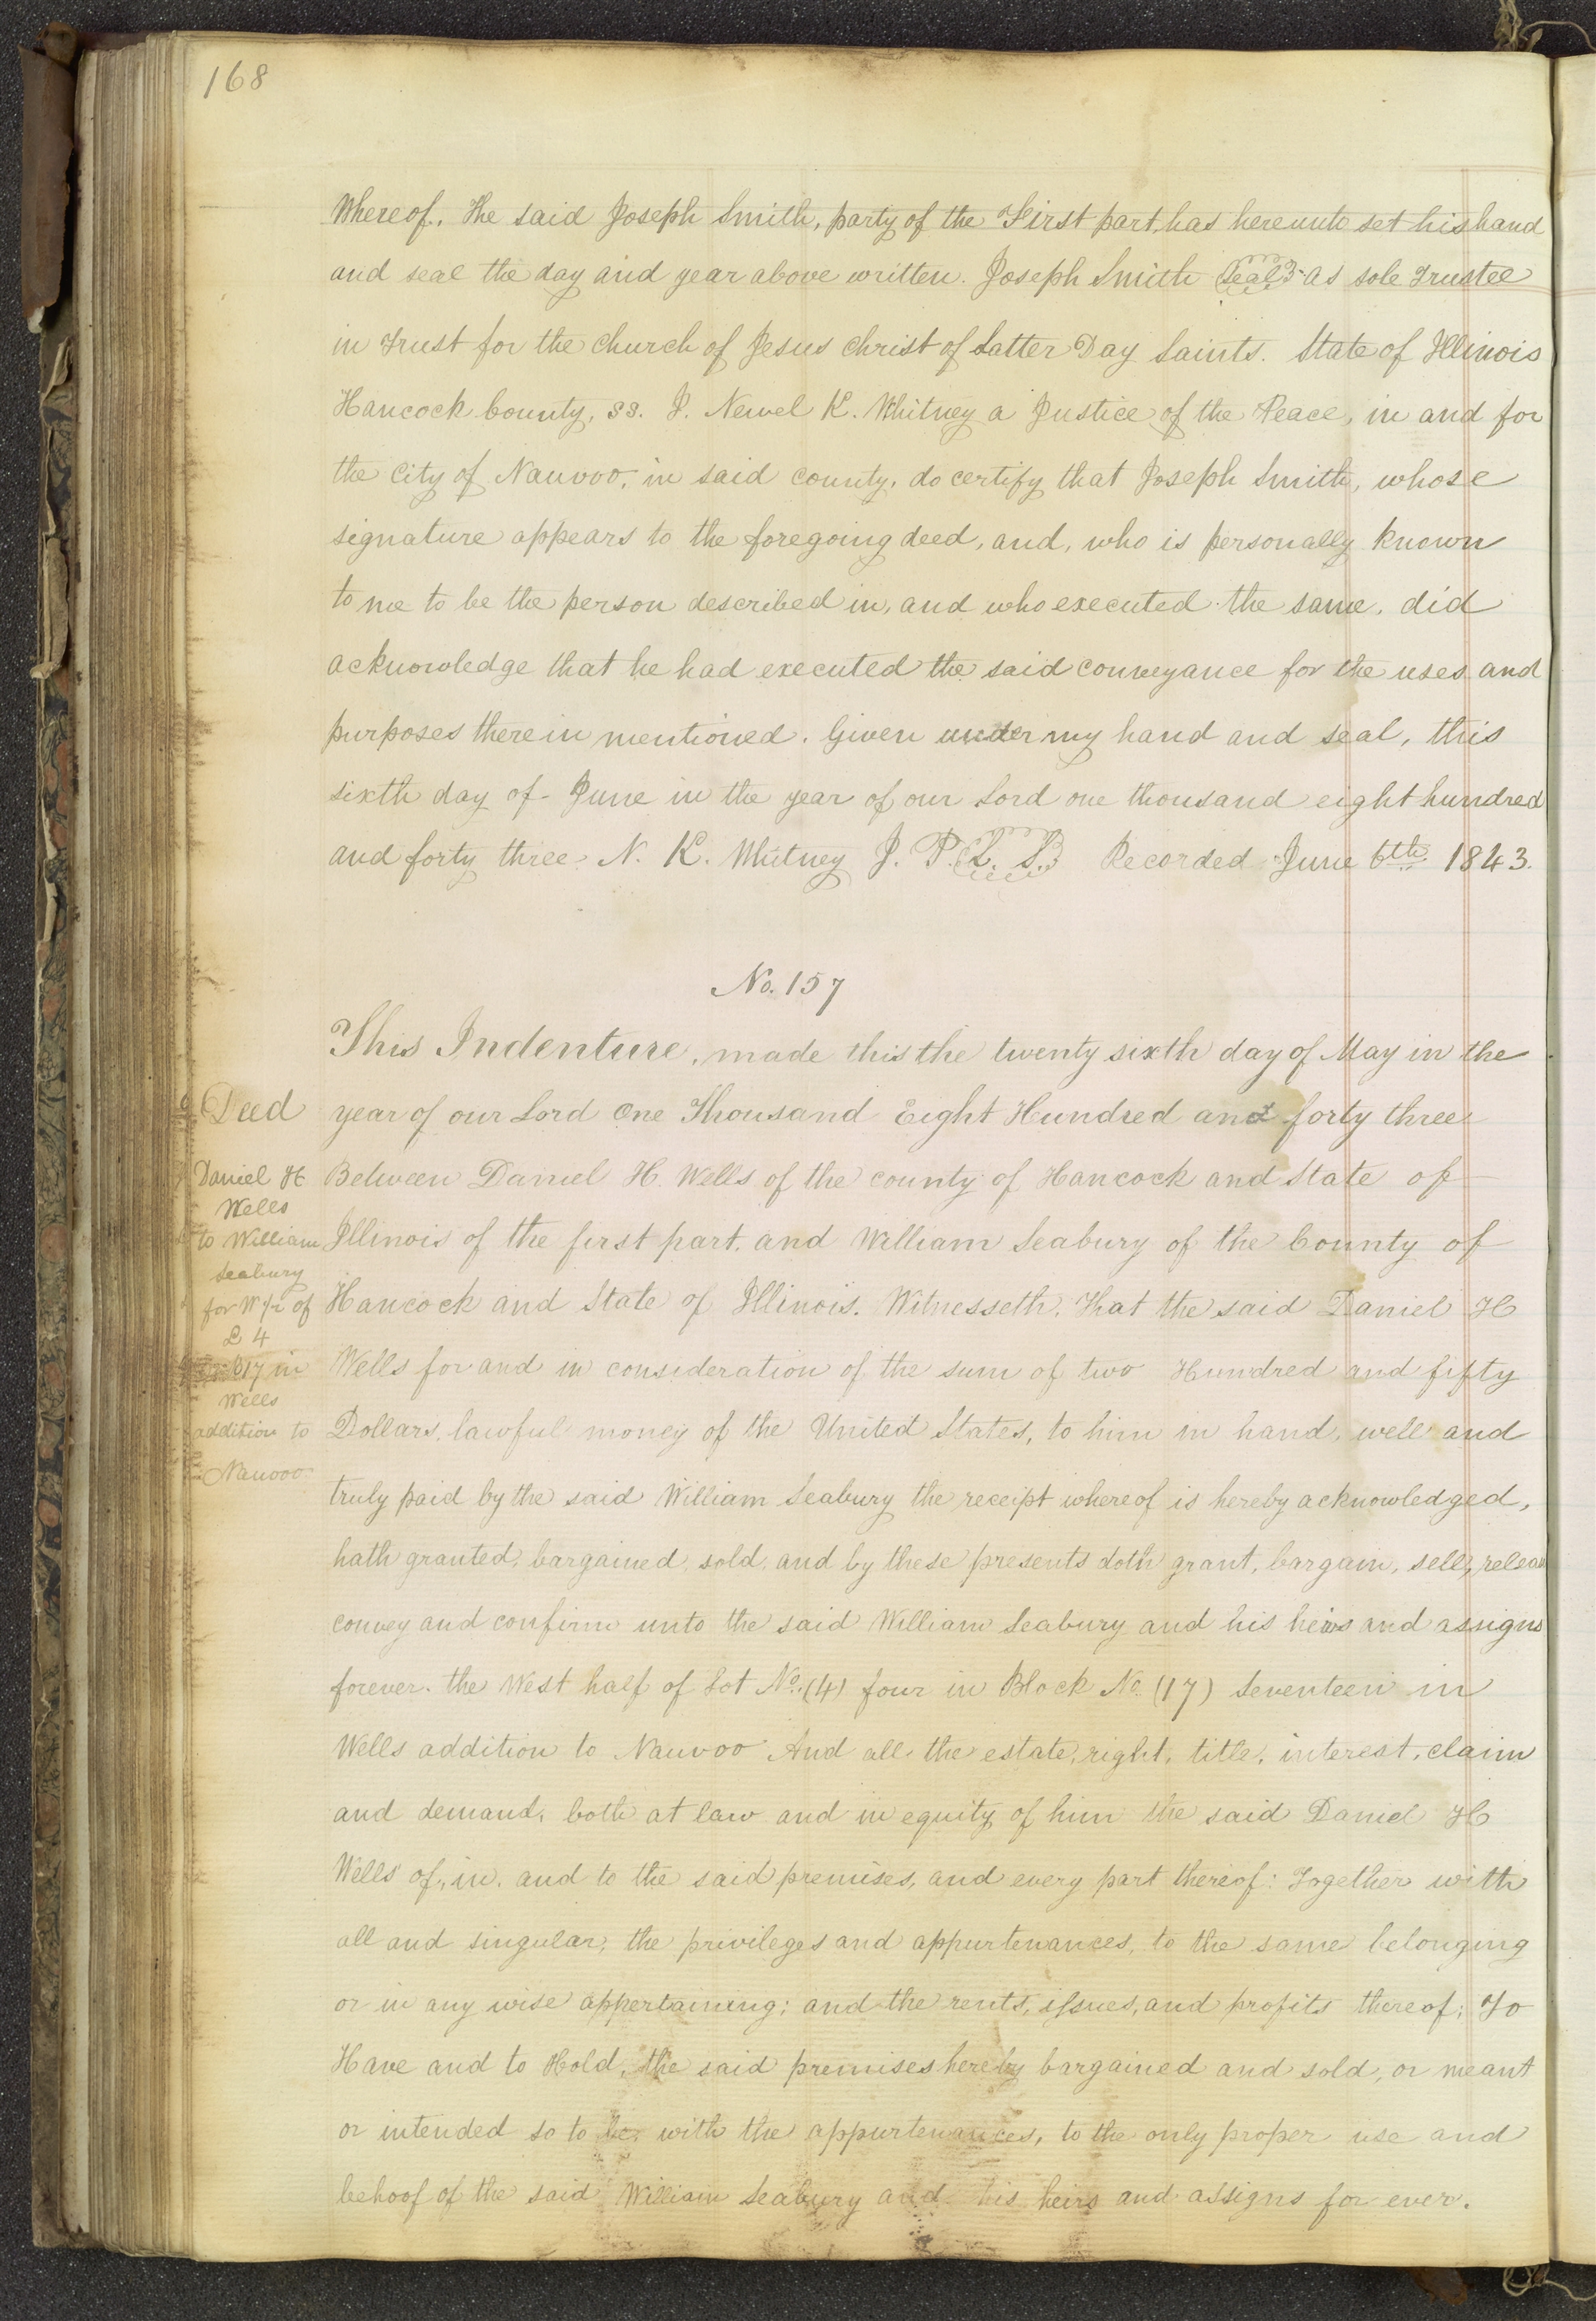 168
Whereof, the said Joseph Smith, party of the First part, has hereunto set his hand
and seal the day and year above written. Joseph Smith Seal as sole Trustee
in Trust for the church of Jesus Christ of Latter Day Saints. State of Illinois
Hancock County, ss. I. Newel K. Whitney a Justice of the Peace, in and for
the City of Nauvoo, in said county, do certify that Joseph Smith, whose
signature appears to the foregoing deed, and, who is personally known
to me to be the person described in, and who executed the same, did
acknowledge that he had executed the said conveyance for the uses and
purposes therein mentioned. Given under my hand and seal, this
sixth day of June in the year of our Lord one thousand eight hundred
and forty three N. K. Whitney J. P. L. S. Recorded June 6th 1843.
No. 157
This Indenture, made this the twenty sixth day of May in the
year of our Lord One Thousand Eight Hundred and forty three
Between Daniel H. Wells of the county of Hancock and State of
Illinois of the first part, and William Seabury of the County of
Hancock and State of Illinois. Witnesseth, That the said Daniel H
Wells for and in consideration of the sum of two Hundred and fifty
Dollars, lawful money of the United States, to him in hand, well and
truly paid by the said William Seabury the receipt whereof is hereby acknowledged,
hath granted, bargained, sold, and by these presents doth grant, bargain, sell, releas
convey and confirm unto the said William Seabury and his heirs and assigns
forever. the West half of Lot No. (4) four in Block No. (17) Seventeen in
Wells addition to Nauvoo And all the estate, right, title, interest, claim
and demand, both at law and in equity of him the said Daniel H
Wells of, in, and to the said premises, and every part thereof: Together with
all and singular, the privileges and appurtenances, to the same belonging
or in any wise appertaining; and the rents, issues, and profits thereof; To
Have and to Hold, the said premises hereby bargained and sold, or meant
or intended so to be, with the appurtenances, to the only proper use and
behoof of the said William Seabury and his heirs and assigns for ever.
Deed
Daniel H
Wells
to William
Seabury
for W 1/2 of
L 4
17 in
Wells
addition to
Nauvoo